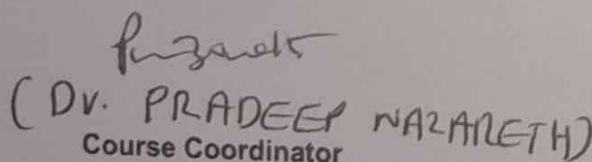 (Dr. PRADEEP NAZARETH)
Course Coordinator